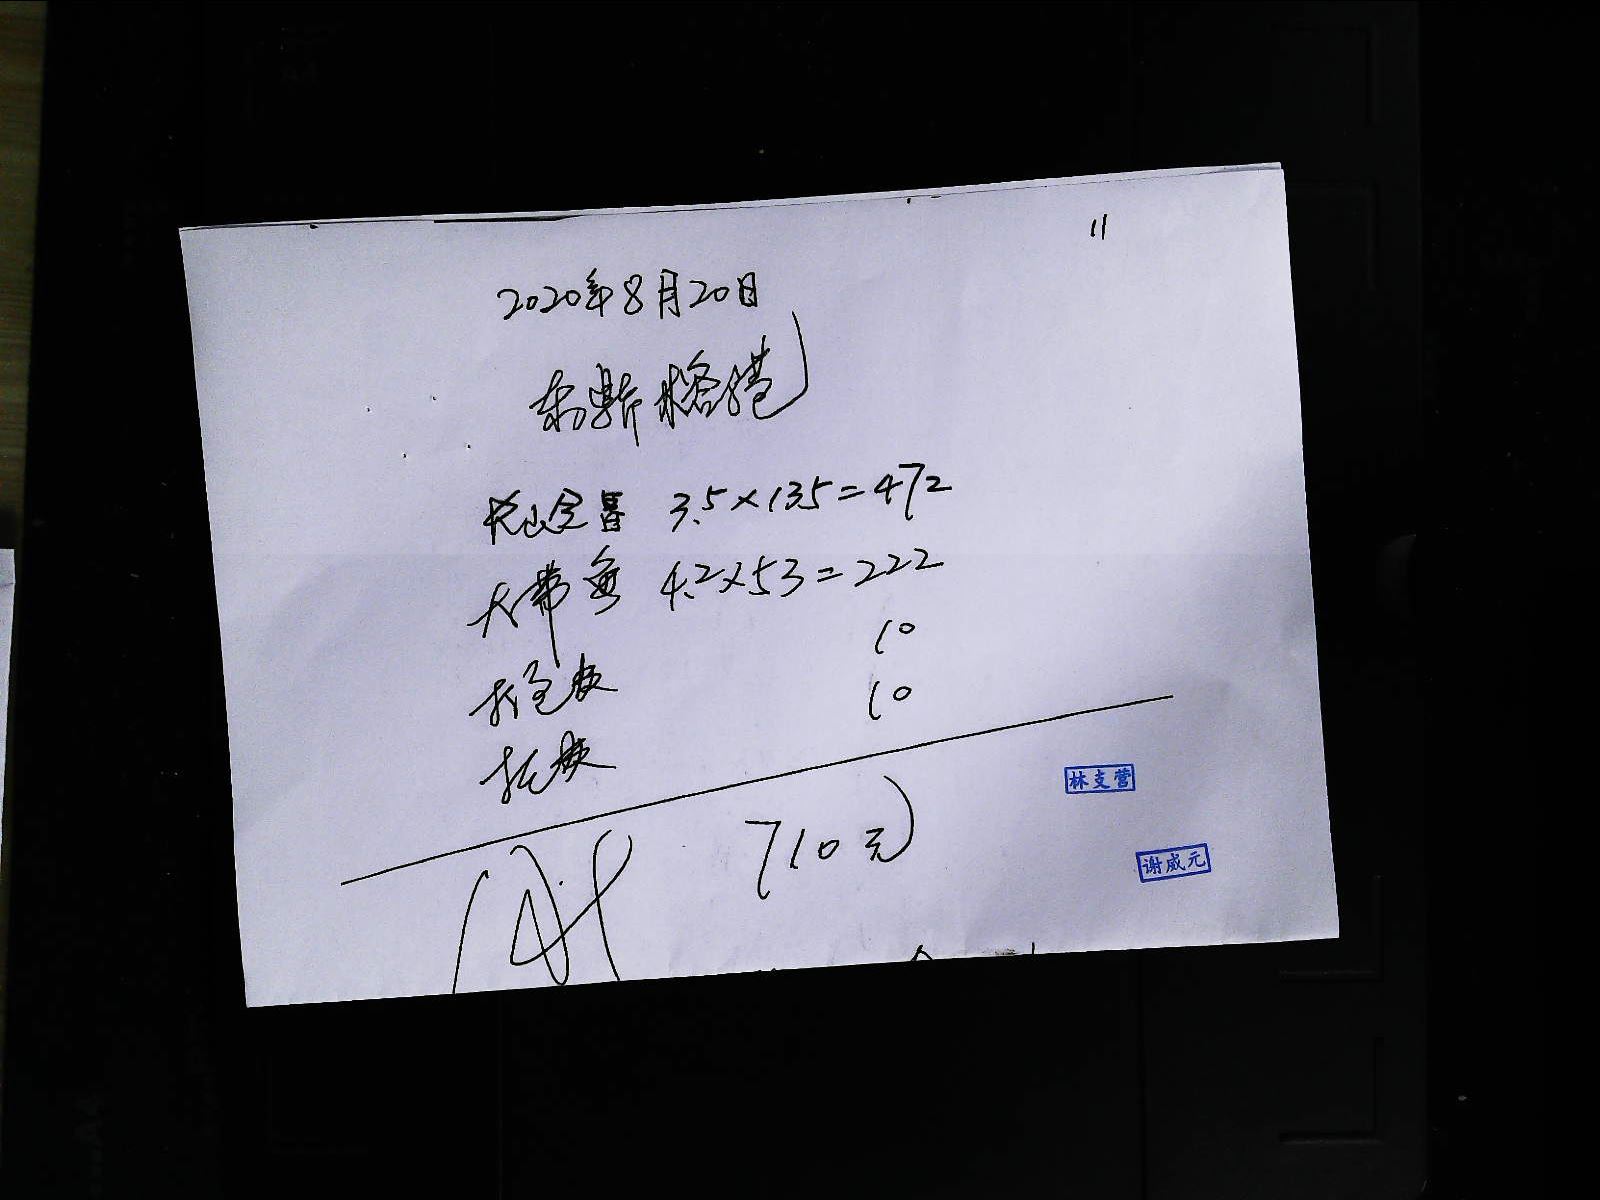 11
2020年8月20日
3.5×135=472
大带鱼 4.2×53=222
打包费 10
托费 10
710元
林支营
谢威元